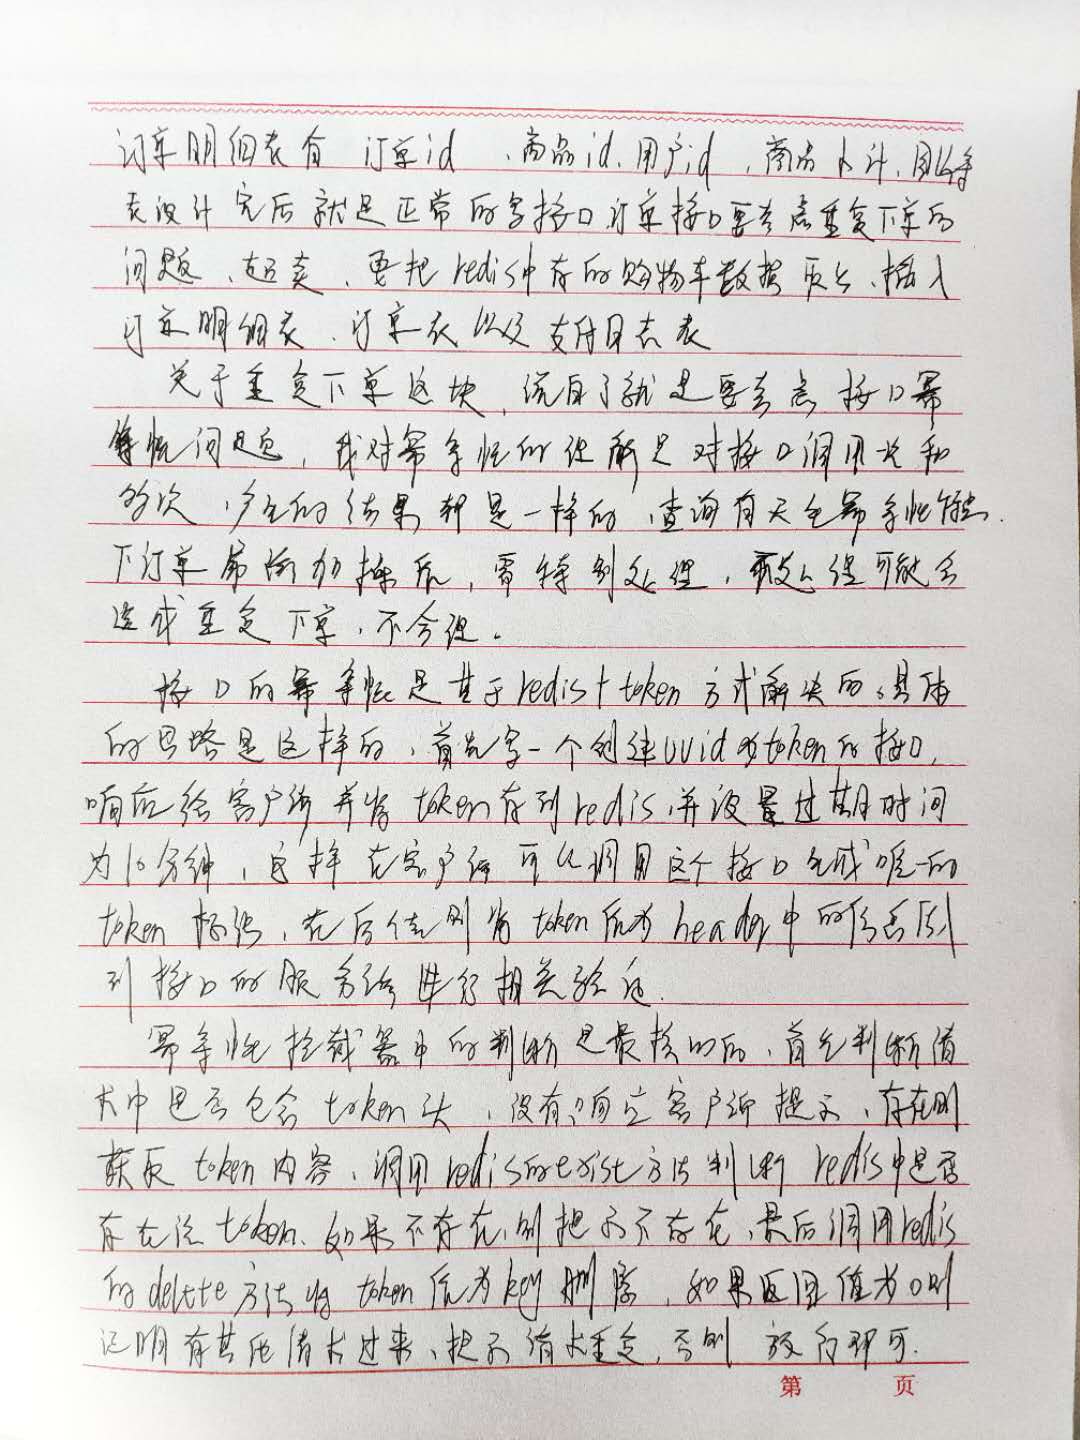 订单明细表有 订单id 、商品id、用户id 、商品小计、
表设计完后就是正常的写接口,订单接口要考虑重复下单的
问题、超卖、要把redis中存的购物车数据取出、插入
订单明细表、订单表以及支付日志表
关于重复下单这块,说白了就是要考虑接口幂
等性问题,我对幂等性的理解是对接口调用一次和
多次,产生的结果都是一样的,查询有天生幂等性
下订单属于操作,需特别处理,处理可能会
造成重复下单,不合理。
接口的幂等性是基于redis+token方式解决的。具体
的思路是这样的,首先写一个创建uuid为token的接口,
响应给客户端并将token存到redis,并设置过期时间
为10分钟,这样在客户端可以调用这个接口生成唯一的
token标识、在后续则将token作为header中的信息
到接口的服务端进行相关验证.
幂等性拦截器中的判断是最核心的,首先判断请
求中是否包含token头,没有,响应客户端提示,存在则
获取token内容,调用redis的exist方法判断redis中是否
存在该token.如果不存在,则提示不存在,最后调用redis
的delete方法将token作为key删除,如果返回值为0则
证明有其他请求过来,提示请求重复,否则 放行即可.
第 页